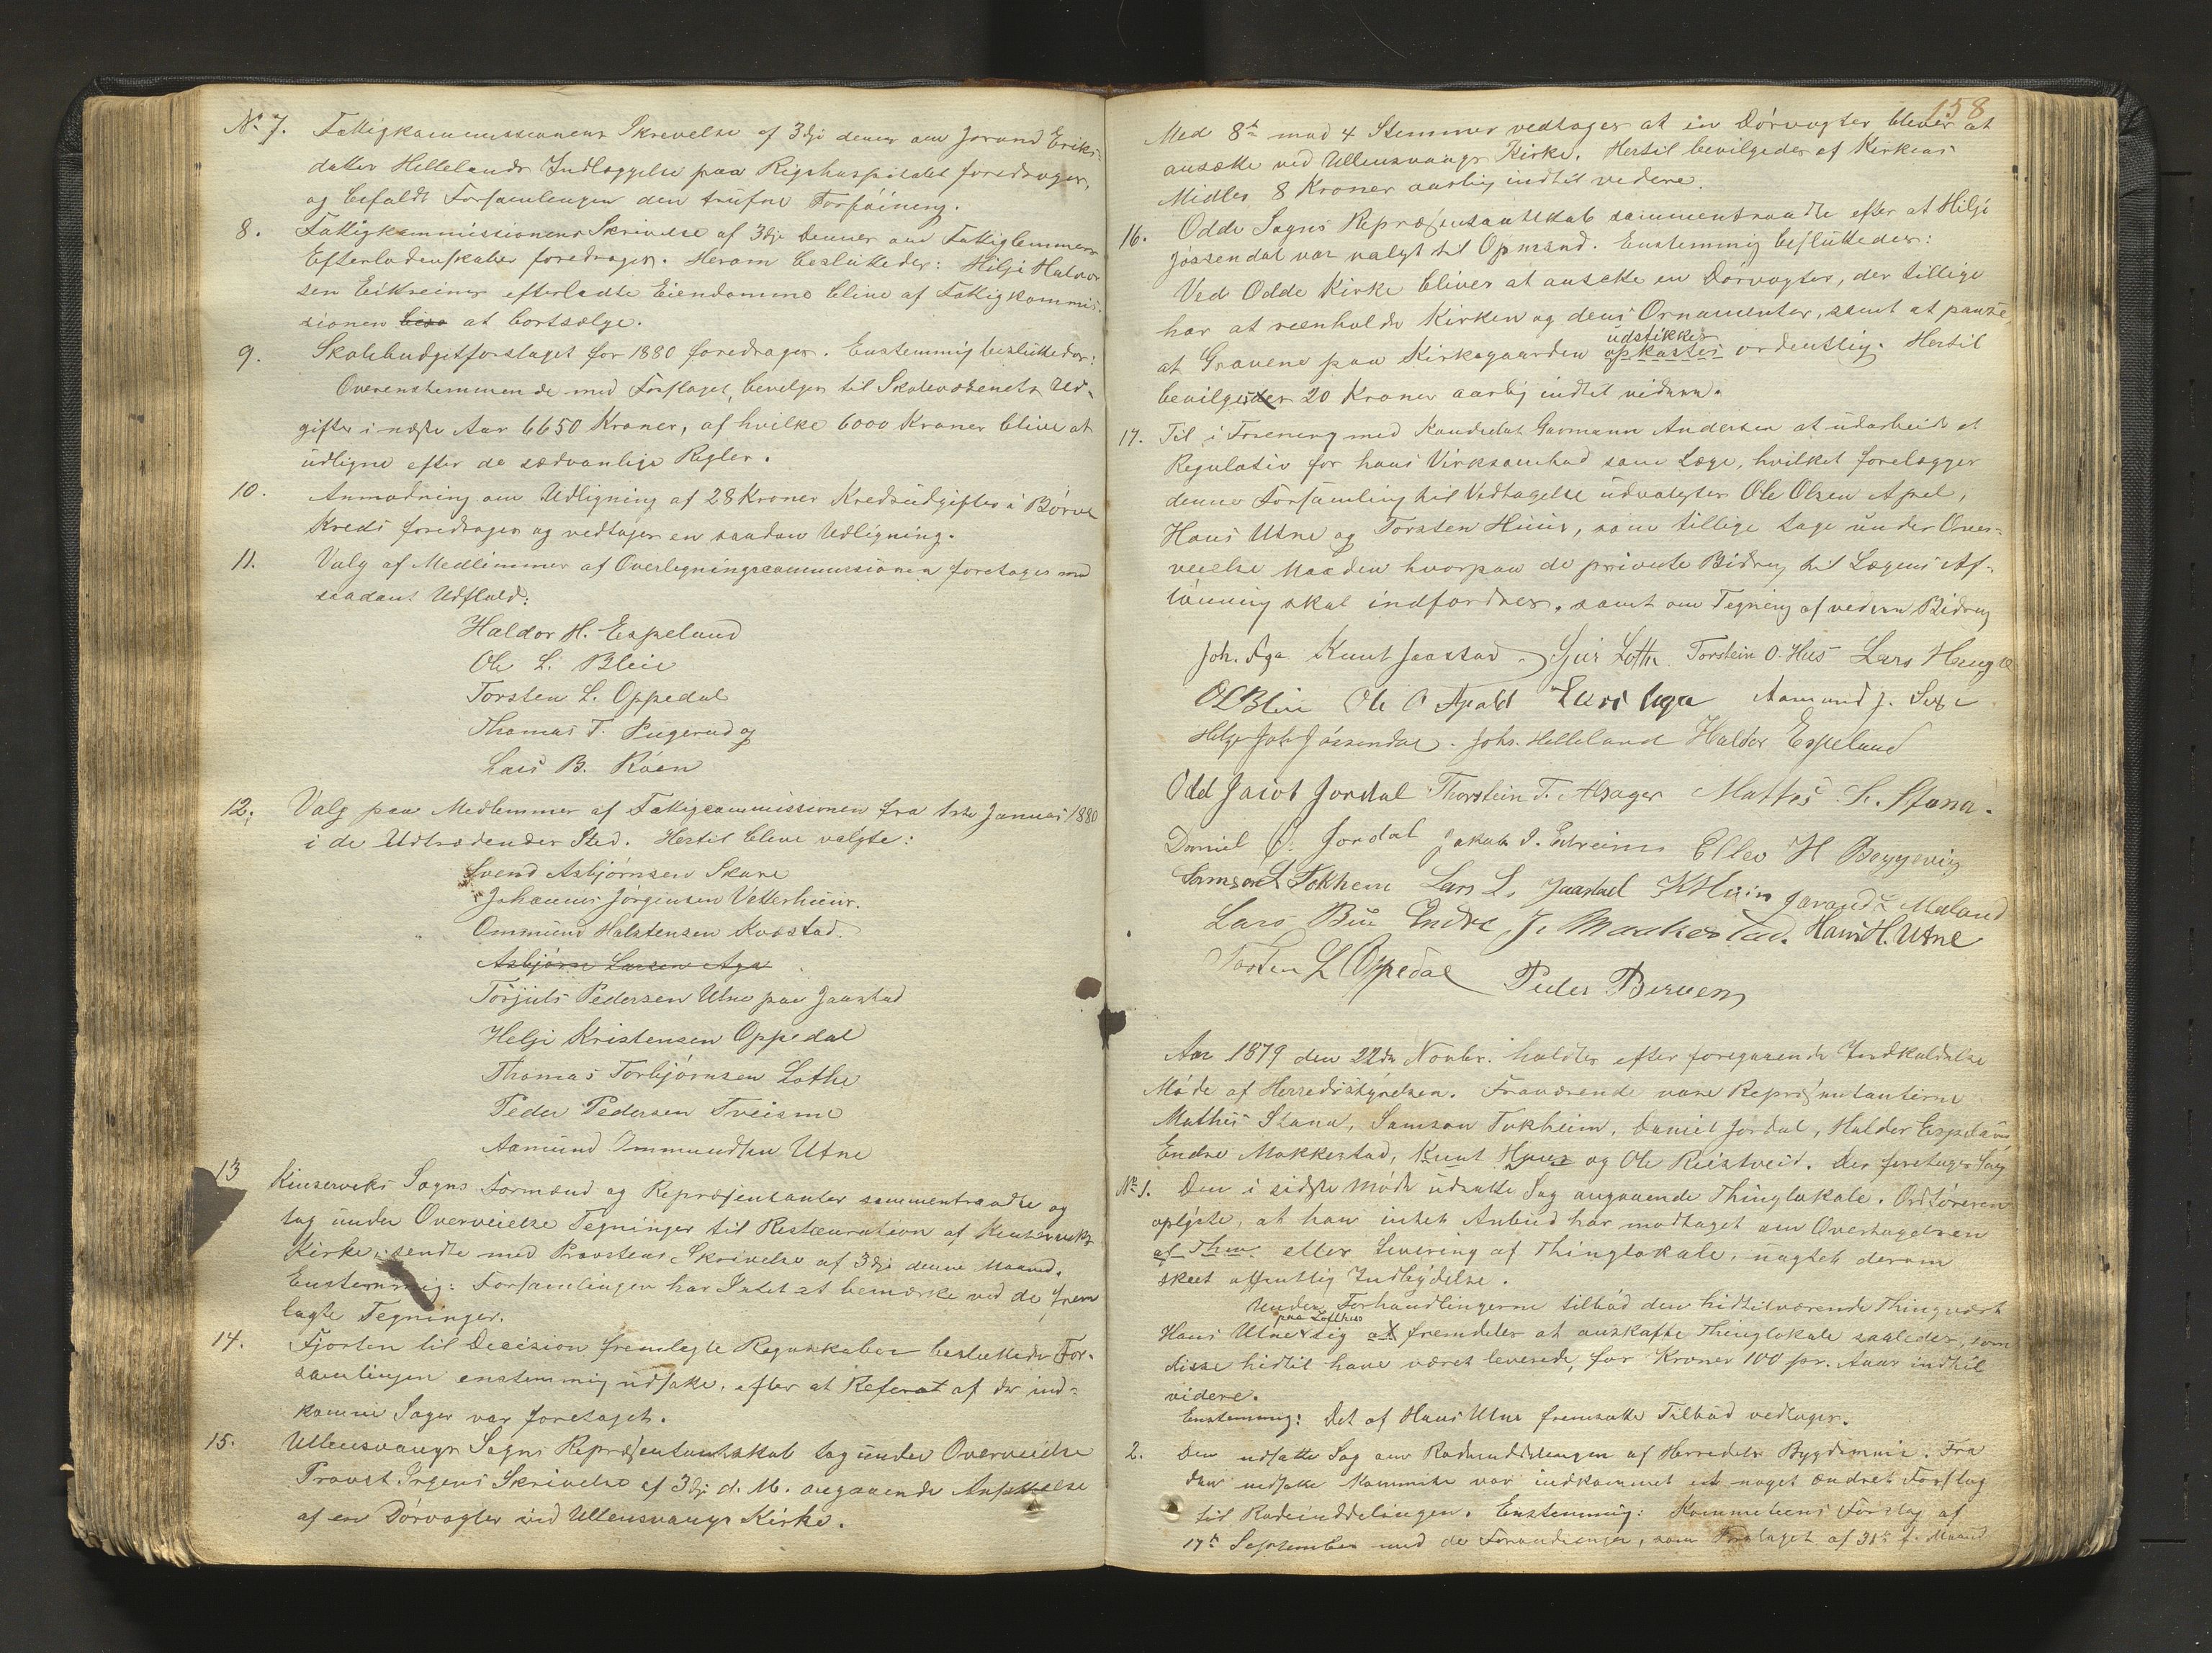 No 7. Fattigkommissionens Skrivelse af 3die dennes om Jorand Eriks-
datter Hellelands Indlæggelse paa Rigshospitalet foredroges,
og befaldt Forsamlingen den trufne Forføining.
8. Fattigkommissionens Skrivelse af 3die Dennes om Fattiglemmers
Efterladenskaber foredroges. Herom besluttedes: Hilje Halvor
sen Eikreims efterladte Eiendomme blive af Fattigkommis-
sionen at bortsælge.
9. Skolebudgetforslaget for 1880 foredroges. Enstemmig besluttedes:
Overenstemmende med Forslaget, bevilges til Skolevæsenets Ud-
gifter i næste Aar 6650 Kroner, af hvilke 6000 Kroner blive at
udligne efter de sædvanlige Regler.
10. Anmodning om Udligning af 28 Kroner Kredsudgifter i Børve
Kreds foredroges og vedtoges en saadan Udligning.
11. Valg af Medlemmer af Overligningscommissionen foretoges med
saadant Udfald:
Haldor H. Espeland
Ole L. Bleie
Torsten L. Oppedal
Thomas T. Pugerud og
Lars B. Roen
12. Valg paa Medlemmer af Fattigcommissionen fra 1ste Januar 1880
i de Udtrædendes Sted. Hertil bleve valgte:
Svend Asbjørnsen Skare
Johannes Jørgensen Vetterhuus.
Ommund Halstensen Kvæstad.
Asbjørn Larsen Aga
Torjuls Pedersen Utne paa Jaastad
Helje Kristensen Oppedal
Thomas Torbjørnsen Lothe
Peder Pedersen Tveisme
Aamund Ommundsen Utne
13 Kinserviks Sogns Formænd og Repræsentanter sammentraadte og
tog under Overveielse Tegninger til Restauration af Kinserviks
Kirke, sendte med Provstens Skrivelse af 3die denne Maaned.
Enstemmig: Forsamlingen har Intet at bemærke ved de frem
lagte Tegninger.
14. Fjorten til Decision fremlagte Regnskaber besluttede For-
samlingen enstemmig udsatte, efter at Referat af de ind-
komne Sager var foretaget.
15. Ullensvangs Sogns Repræsentantskab tog under Overveielse
Provst Irgens Skrivelse af 3die d. M. angaaende Ansættelse
af en Dørvogter ved Ullensvangs Kirke.
158
Med 8te mod 4 Stemmer vedtoges at en Dørvogter bliver at
ansætte ved Ullensvangs Kirke. Hertil bevilgedes af Kirkens
Midler 8 Kroner aarlig indtil videre.
16. Odde Sogns Repræsentantskab sammentraadte efter at Hilje
Jøssendal var valgt til Opmand. Enstemmig besluttedes:
Ved Odde Kirke bliver at ansætte en Dørvogter, der tillige
har at reenholde Kirken og dens Ornamenter, samt at passe,
udstikkes
at Gravene paa Kirkegaarden opkastes ordentlig. Hertil
bevilges 20 Kroner aarlig indtil videre.
17. Til i Forening med Kandidat Garmann Andersen at udarbeide et
Regulativ for hans Virksomhed som Læge, hvilket forelægges
denne Forsamling til Vedtagelse udvalgtes Ole Olsen Apel,
Hans Utne og Torsten Huus, som tillige tage under Over-
veielse Maaden hvorpaa de private Bidrag til Lægens Af-
lønning skal indfordres, samt om Tegning af videre Bidrag
Joh. Aga Knut Jaastad. Sjur Lothe Torstein O. Hus Lars Hauge
O L Bleie Ole O Apald Lars Aga Aamund J. Sexe
Helje Joh Jøssendal. Johs. Helleland Haldor Espeland
Odd Jacob Jordal Thorstein T. Alsager Mattis S. Stana.
Daniel J. Jordal Jakob I. Eitreim Ellev H Beggevig
Samson L Tokheim Lars L. Jaastad K Huus Jørand L Mæland
Lars Bue Endre J. Maakestad. Hans H. Utne
Torsten L Oppedal Peder Berven
Aar 1879 den 22de Novbr. holdtes efter foregaaende Indkaldelse
Møde af Herredsstyrelsen. Fraværende vare Repræsentanterne
Mathis Stana, Samson Tokheim, Daniel Jordal, Haldor Espeland
Endre Makkestad, Knut Huus og Ole Reistveid. Der foretoges Sag
No 1. Den i sidste Møde udsatte Sag angaaende Thinglokale. Ordføreren
oplyste, at han intet Anbud har modtaget om Overtagelsen
af Thin. eller Levering af Thinglokale, uagtet derom
skeet offentlig Indbydelse.
Under Forhandlingerne tilbød den hidtilværende Thingvært
paa Lofthus
Hans Utne sig at fremdeles at anskaffe Thinglokale saaledes, som
disse hidtil have været leverede, for Kroner 100 pr. Aar indtil
videre.
Enstemmig: Det af Hans Utne fremsatte Tilbud vedtages.
2. Den udsatte Sag om Rodeinddelingen af Herredets Bygdeveie. Fra
den nedsatte Kommite var indkommet et noget ændret Forslag
til Rodeinddelingen. Enstemmig: Kommiteens Forslag af
17de September med de Forandringer, som Forslaget af 31te f. Maaned